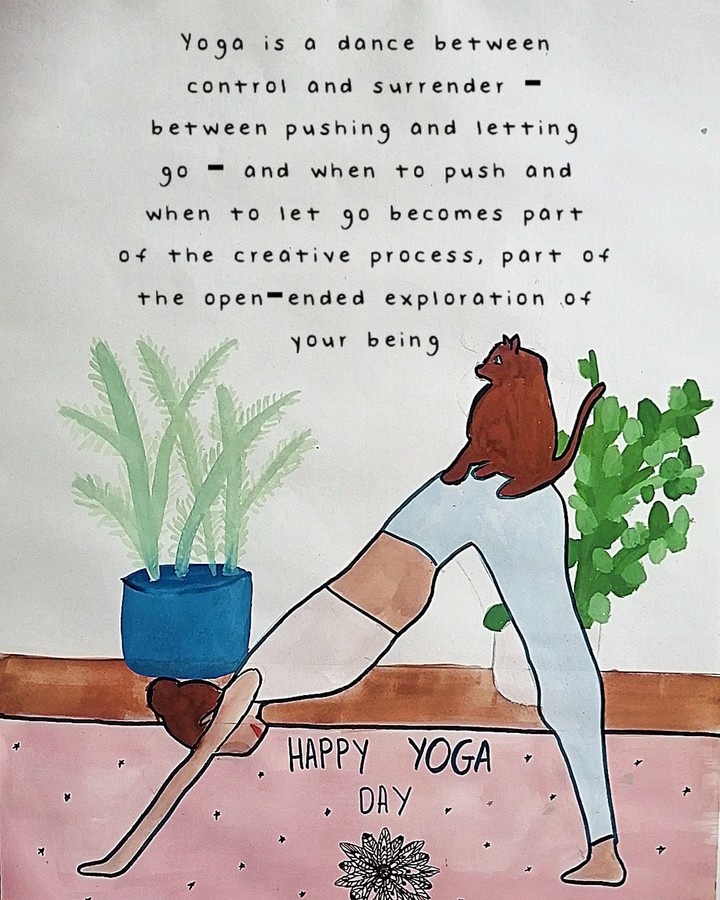 Yoga is a dance between
control and surrender -
between pushing and letting
go - and when to push and
when to let go becomes part
of the creative process, part of
the open-ended exploration of
your being
HAPPY YOGA
DAY